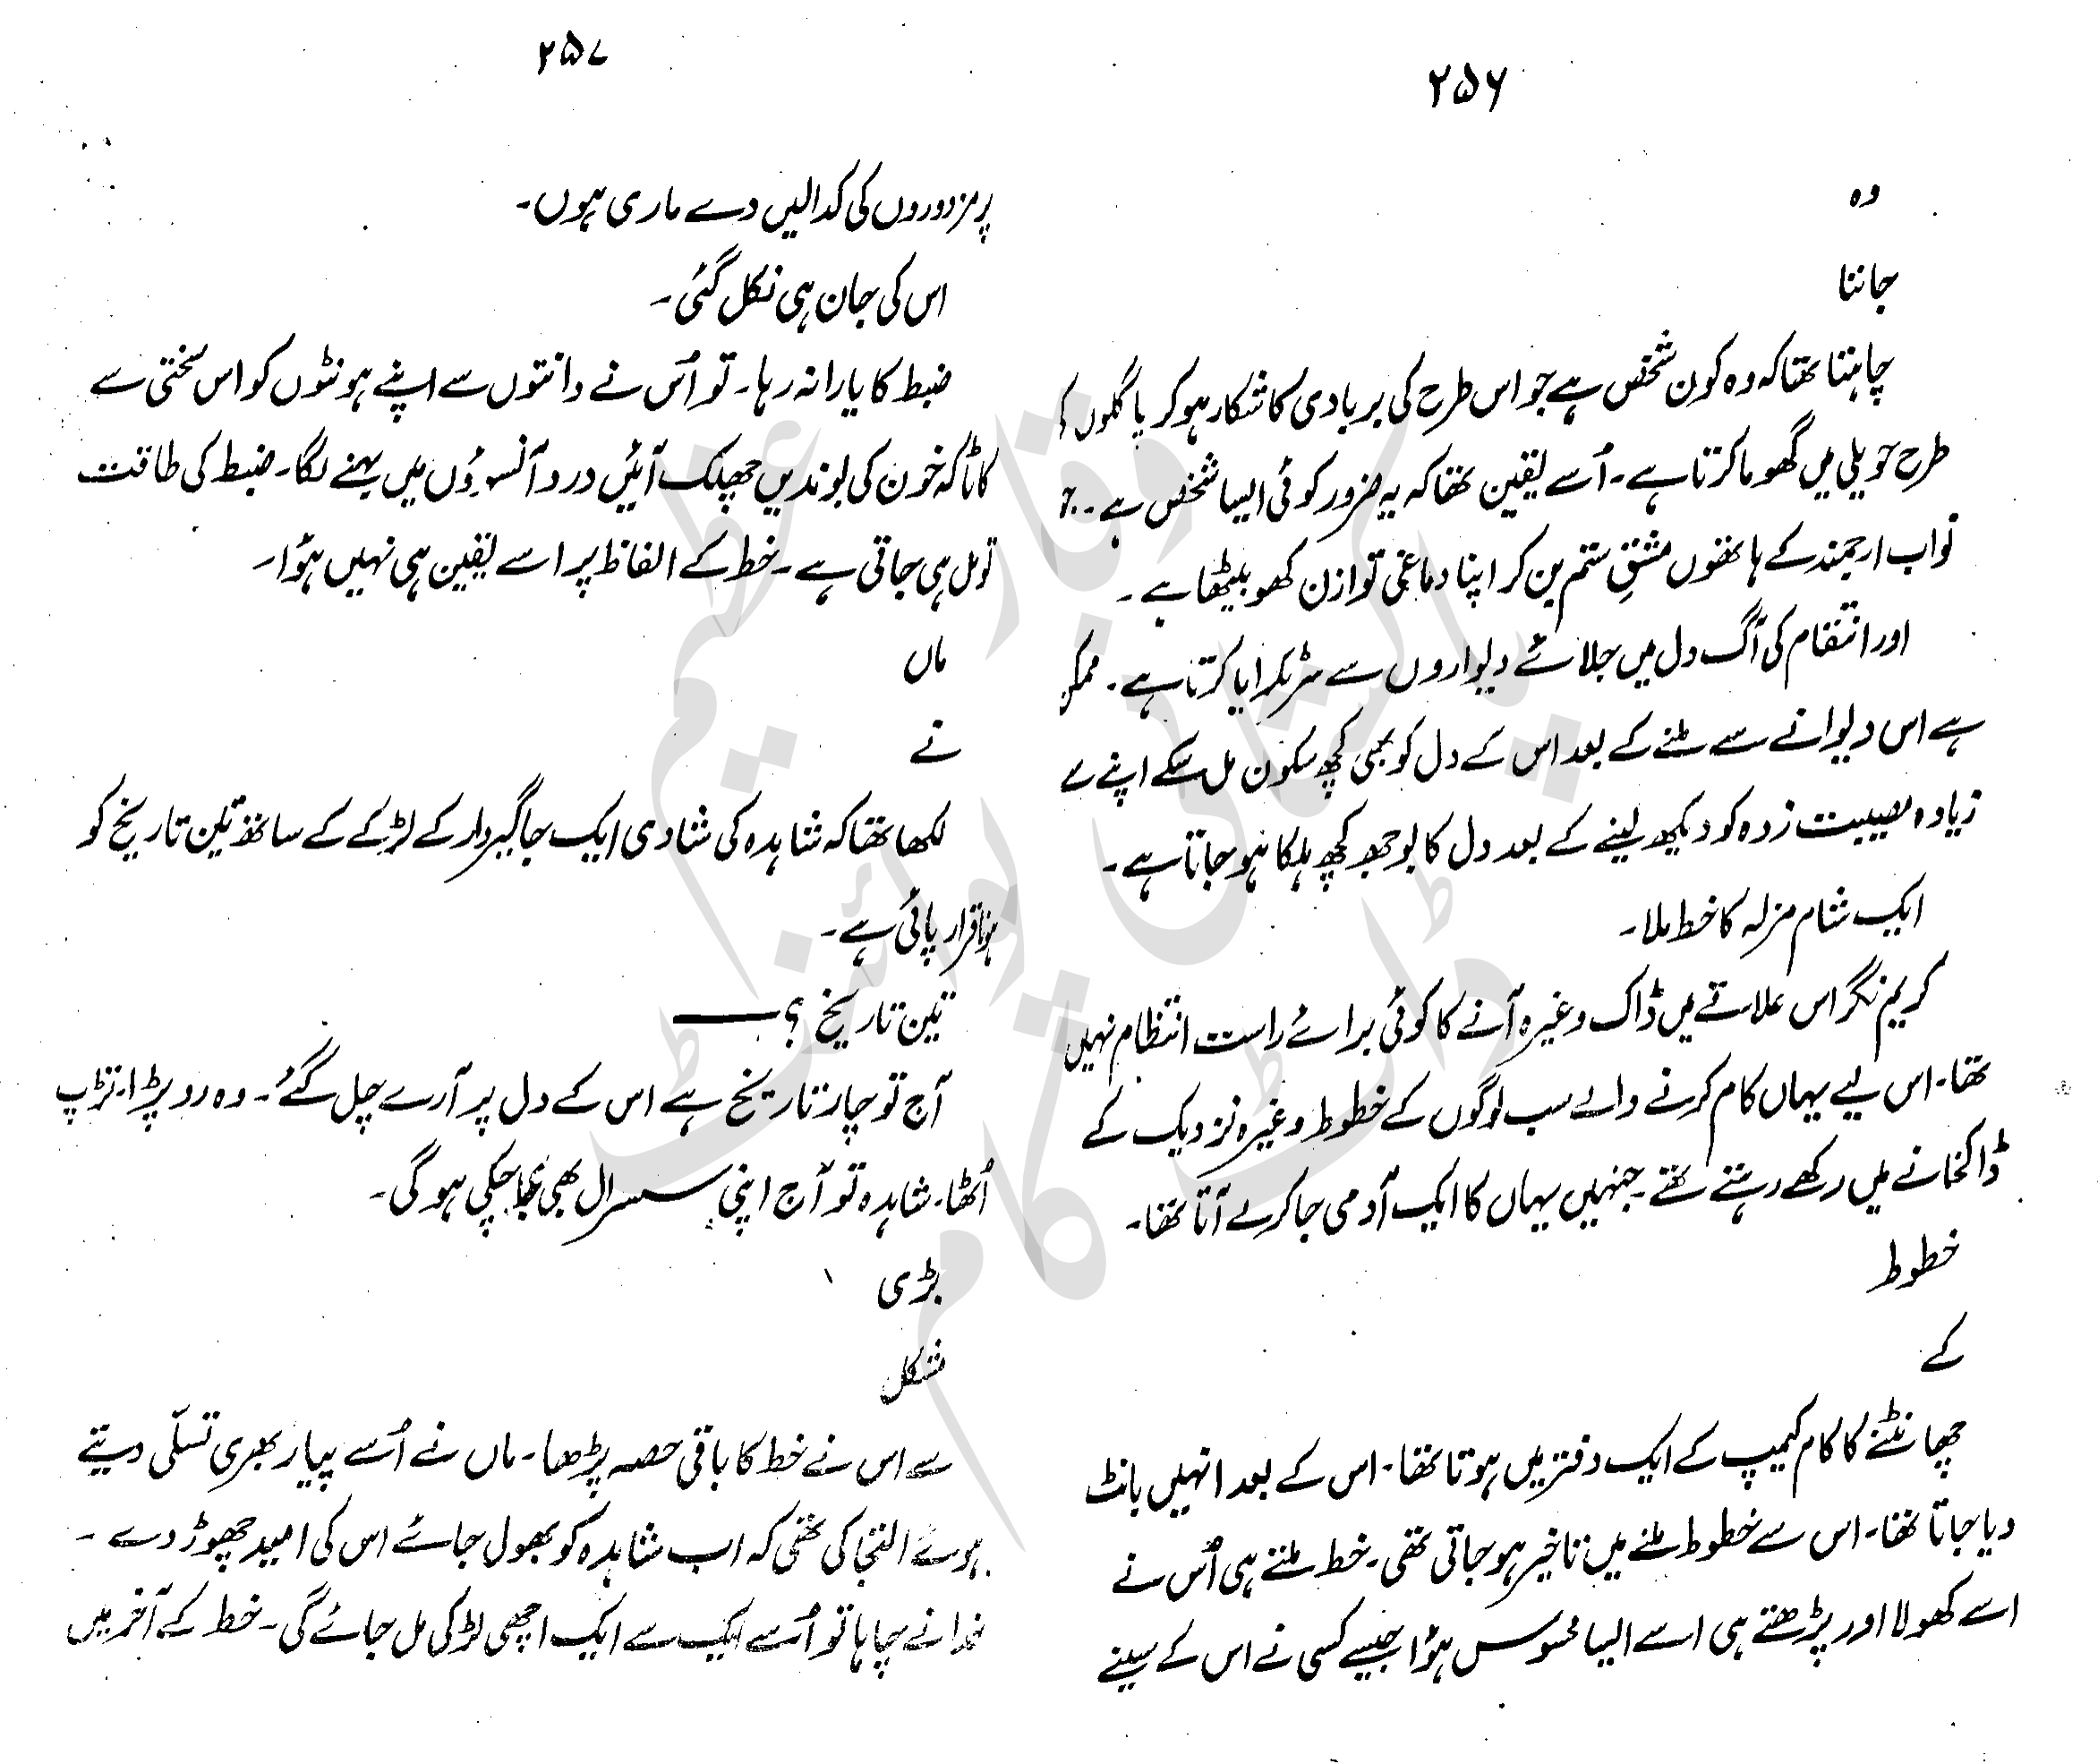 ۲۵۶
وہ
جاننا
چاہتا تھا کہ وہ کون شخص ہے جو اس طرح کی بربادی کا شکار ہو کر پاگلوں کی
طرح حویلی میں گھوما کرتا ہے۔ اُسے یقین تھا کہ یہ ضرور کوئی ایسا شخص ہے۔۔ جو
نواب ارجمند کے ہاتھوں مشقِ ستم بن کر اپنا دماغی توازن کھو بیٹھا ہے۔
اور انتقام کی آگ دل میں جلائے دیواروں سے سر ٹکرایا کرتا ہے۔ ممکن
ہے اس دیوانے سے ملنے کے بعد اس کے دل کو بھی کچھ سکون مل سکے اپنے سے
زیادہ مصیبت زدہ کو دیکھ لینے کے بعد دل کا بوجھ کچھ ہلکا ہو جاتا ہے۔
ایک شام مزلہ کا خط ملا۔
کریم نگر اس علاقے میں ڈاک وغیرہ آنے کا کوئی برائے راست انتظام نہیں
تھا۔ اس لیے یہاں کام کرنے والے سب لوگوں کے خطوط وغیرہ نزدیک کے
ڈاکخانے میں رکھے رہتے تھے۔ جنہیں یہاں کا ایک آدمی جا کر لے آتا تھا۔
خطوط
کے
چھانٹنے کا کام کیمپ کے ایک دفتر میں ہوتا تھا۔ اس کے بعد انہیں بانٹ
دیا جاتا تھا۔ اس سے خطوط ملنے میں تاخیر ہو جاتی تھی۔ خط ملتے ہی اُس نے
اسے کھولا اور پڑھتے ہی اسے ایسا محسوس ہوُا جیسے کسی نے اس کے سینے
۲۵۷
پر مزدوروں کی کدالیں دے ماری ہوں۔
اس کی جان ہی نکل گئی۔
ضبط کا یارا نہ رہا۔ تو اُس نے دانتوں سے اپنے ہونٹوں کو اس سختی سے
کاٹا کہ خون کی بوندیں چھلک آئیں درد آنسوؤں میں بہنے لگا۔ ضبط کی طاقت
تو مل ہی جاتی ہے۔ خط کے الفاظ پر اسے یقین ہی نہیں ہوُا۔
ماں
نے
لکھا تھا کہ شاہدہ کی شادی ایک جاگیردار کے لڑکے کے ساتھ تین تاریخ کو
ہونا قرار پائی ہے۔
تین تاریخ ؟ ——
آج تو چار تاریخ ہے اس کے دل پر آرے چل گئے۔ وہ رو پڑا۔ تڑپ
اُٹھا۔ شاہدہ تو آج اپنی سسرال بھی جا چکی ہو گی۔
بڑی
شکل
سے اس نے خط کا باقی حصہ پڑھا۔ ماں نے اُسے پیار بھری تسلّی دیتے
ہوئے التجا کی تھی کہ اب شاہدہ کو بھول جائے اس کی امید چھوڑ دے۔
خدا نے چاہا تو اُسے ایک سے ایک اچھی لڑکی مل جائے گی۔ خط کے آخر میں
عظیم وقار پاکستانی پوائنٹ ڈاٹ کام